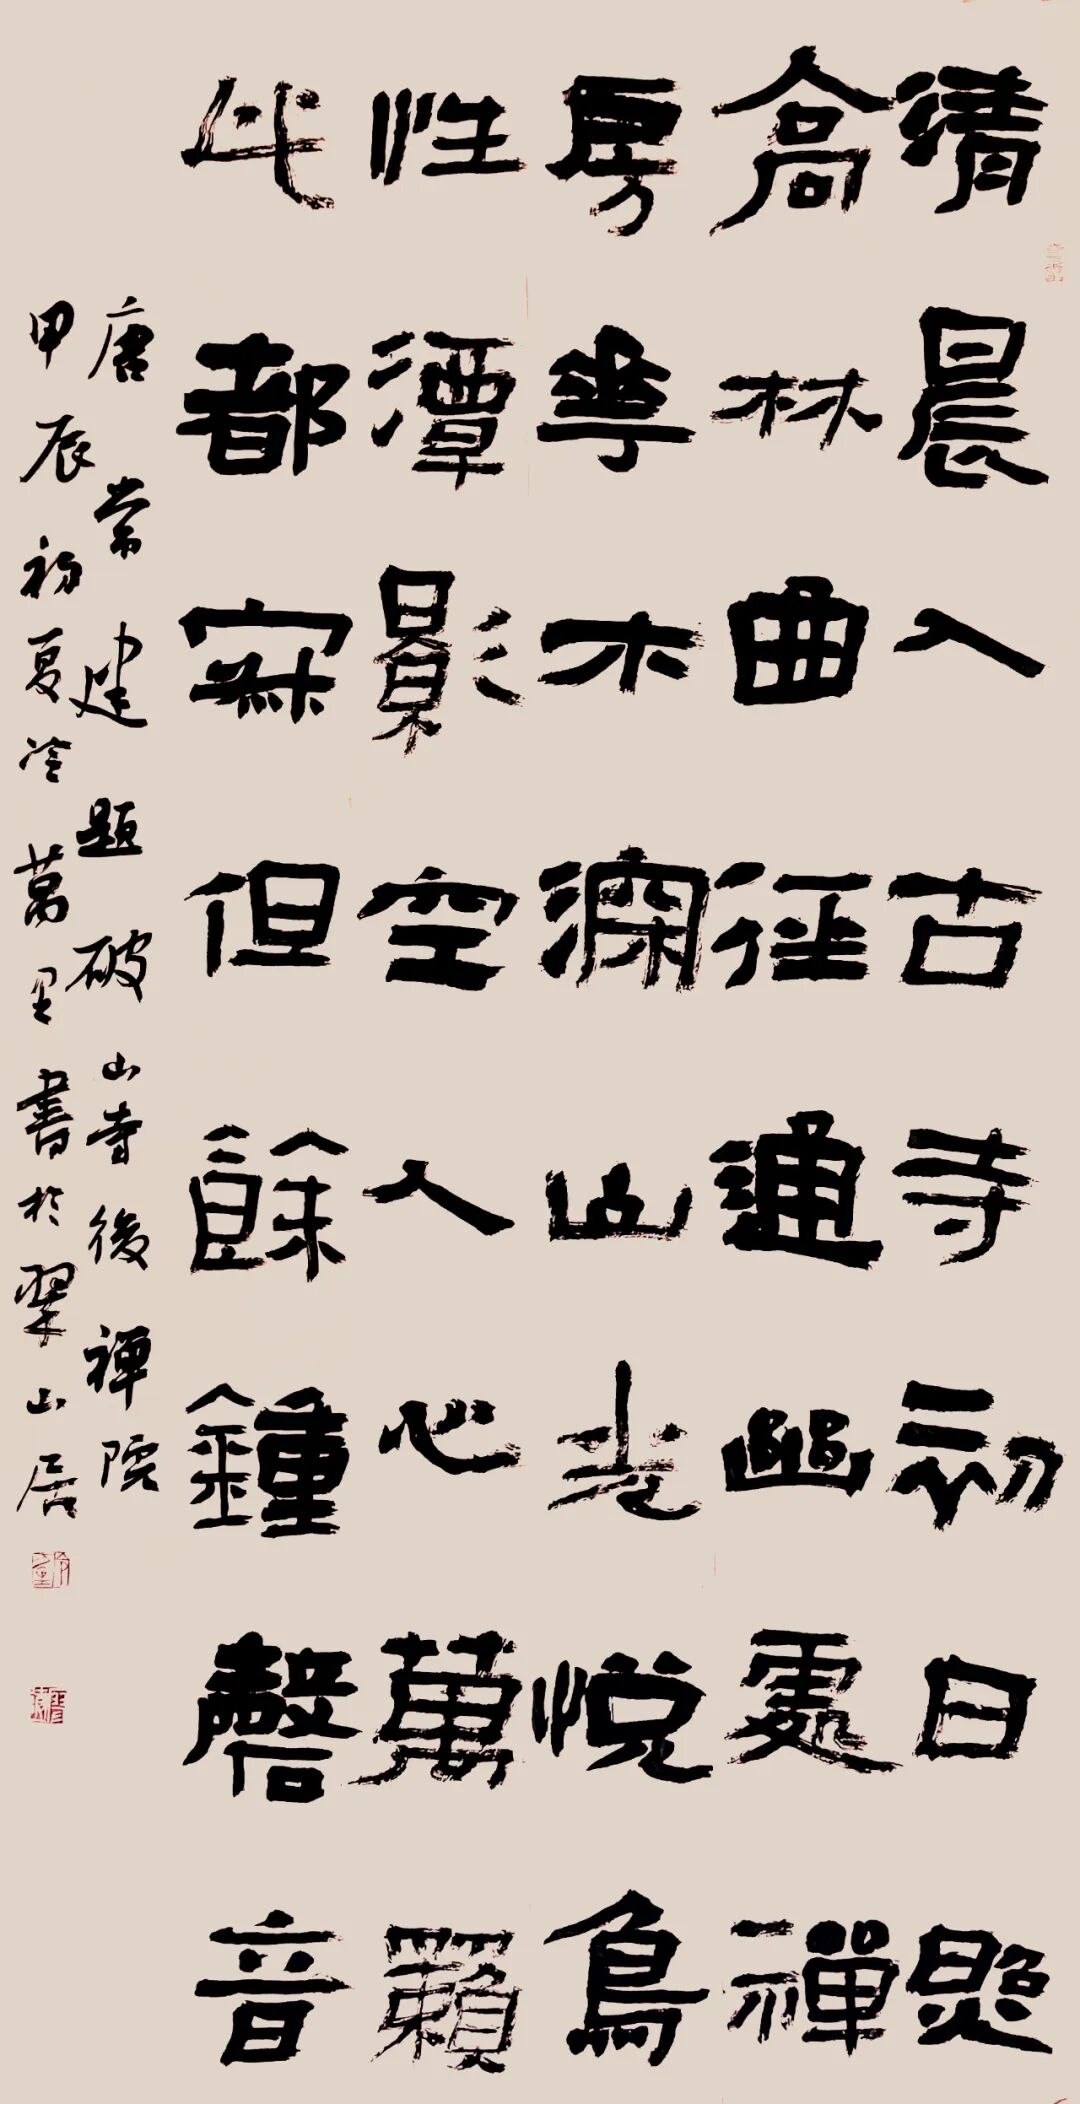 清晨入古寺初日照
高林曲徑通幽處禪
房華木深山光悅鳥
性潭影空人心萬籟
此都寂但餘鍾磬音
唐常建題破山寺後禪院
甲辰初夏冷萬里書於翠山居